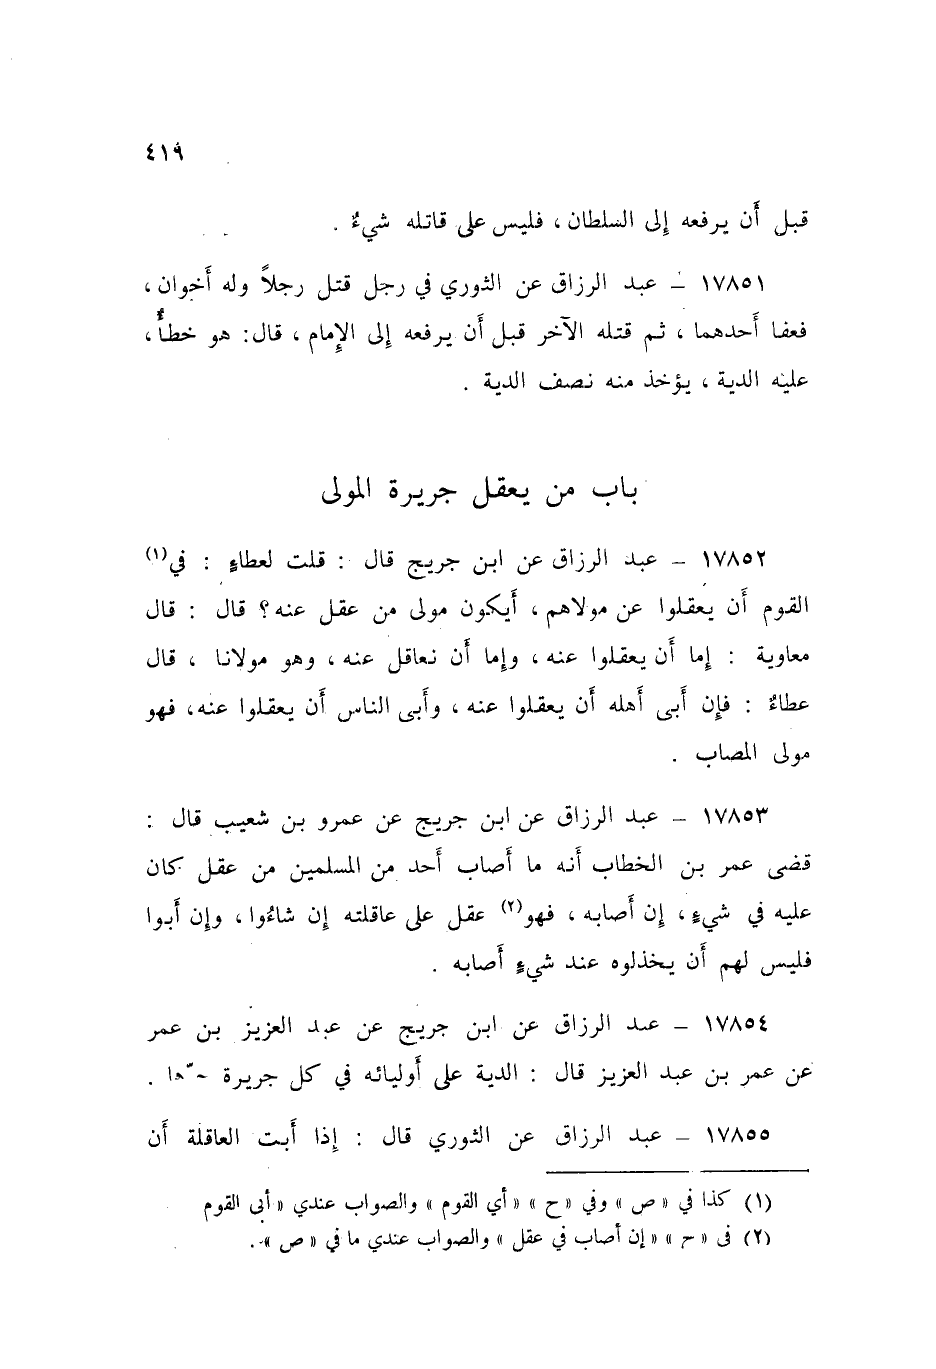 ٤١٩
قبل أن يرفعه إلى السلطان ، فليس على قاتله شيءٌ .
١٧٨٥١ – عبد الرزاق عن الثوري في رجل قتل رجلاً وله أخوان ،
فعفا أحدهما ، ثم قتله الآخر قبل أن يرفعه إلى الإمام ، قال: هو خطأٌ ،
عليه الدية ، يؤخذ منه نصف الدية .
باب من يعقل جريرة المولى
١٧٨٥٢ – عبد الرزاق عن ابن جريج قال : قلت لعطاءٍ : في(١)
القوم أن يعقلوا عن مولاهم ، أيكون مولى من عقل عنه؟ قال : قال
معاوية : إما أن يعقلوا عنه ، وإما أن نعاقل عنه ، وهو مولانا ، قال
عطاءٌ : فإن أبى أهله أن يعقلوا عنه ، وأبى الناس أن يعقلوا عنه، فهو
مولى المصاب .
١٧٨٥٣ – عبد الرزاق عن ابن جريج عن عمرو بن شعيب قال :
قضى عمر بن الخطاب أنه ما أصاب أحد من المسلمين من عقل كان
عليه في شيءٍ ، إن أصابه ، فهو(٢) عقل على عاقلته إن شاءُوا ، وإن أبوا
فليس لهم أن يخذلوه عند شيءٍ أصابه .
١٧٨٥٤ – عبد الرزاق عن ابن جريج عن عبد العزيز بن عمر
عن عمر بن عبد العزيز قال : الدية على أوليائه في كل جريرة .
١٧٨٥٥ – عبد الرزاق عن الثوري قال : إذا أبت العاقلة أن
(١) كذا في « ص » وفي «ح » « أي القوم » والصواب عندي « أبى القوم
(٢) في « ح » « إن أصاب في عقل » والصواب عندي ما في « ص » .